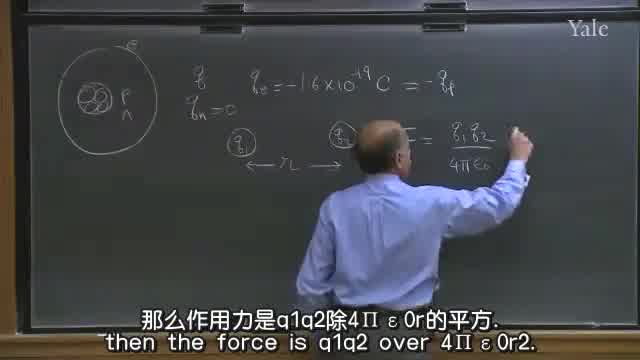 Yale
e
p
n
q
qe = -1.6×10^-19 C = -qp
qn = 0
q1
q2
= q1 q2
4πε0
那么作用力是q1q2除4Πε0r的平方.
then the force is q1q2 over 4Πε0r2.